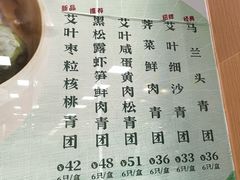 新品
艾叶枣粒核桃青团
¥42
6只/盒
推荐
黑松露虾笋鲜肉青团
¥48
6只/盒
艾叶咸蛋黄肉松青团
¥51
6只/盒
荠菜鲜肉青团
¥36
6只/盒
招牌
艾叶细沙青团
¥33
6只/盒
经典
马兰头青团
¥36
6只/盒